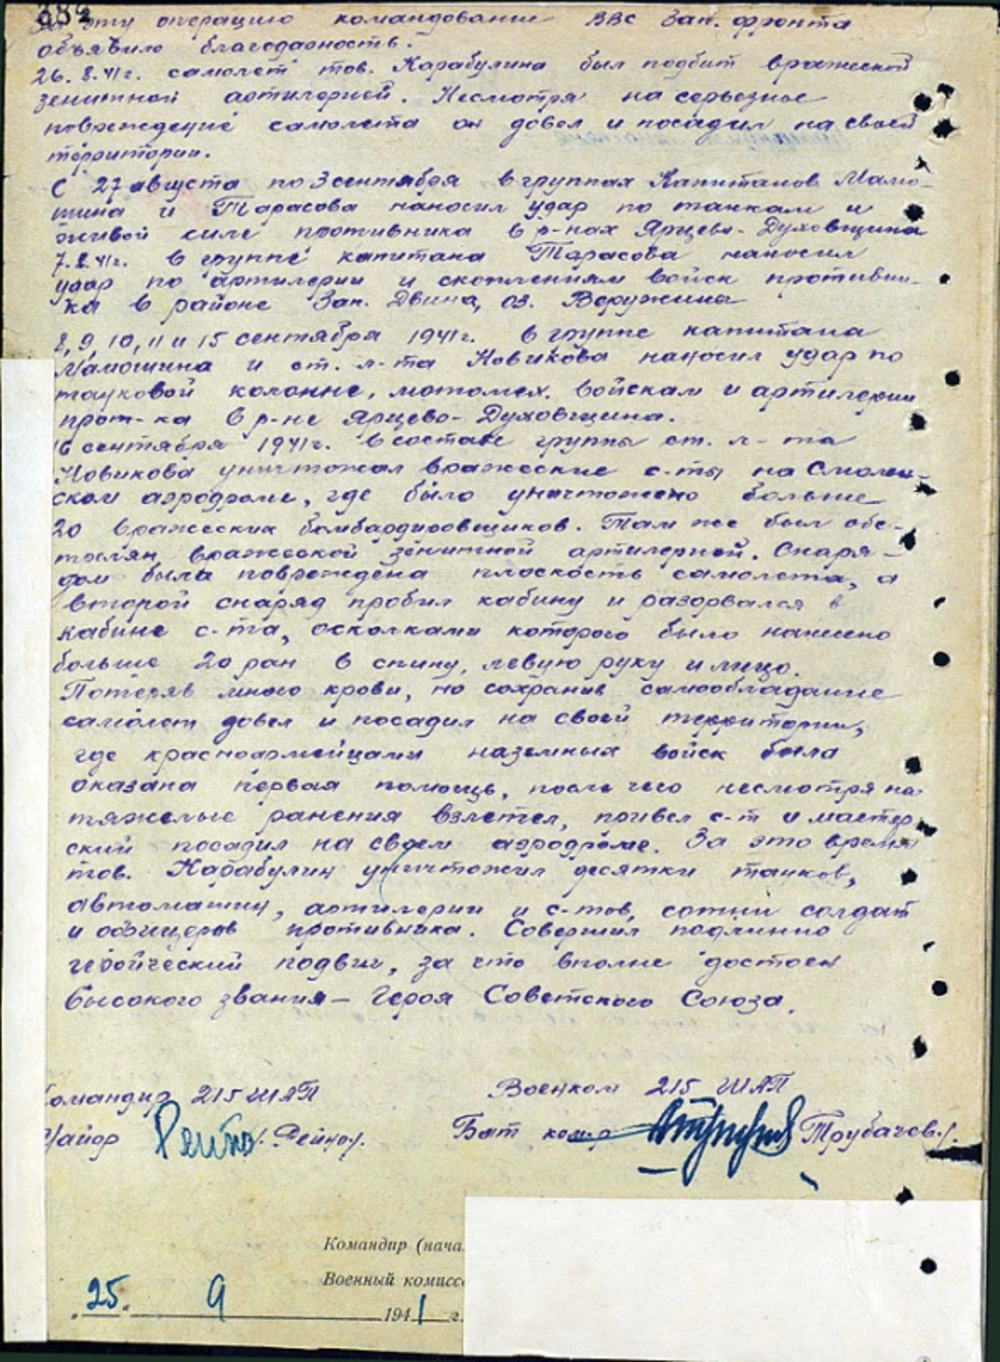 382
За эту операцию командование ВВС Зап. фронта
объявило благодарность.
26.8.41г. самолет тов. Карабулина был подбит вражеской
зенитной артилерией. Несмотря на серьезное
повреждение самолета он довел и посадил на своей
территории.
С 27 августа по 3 сентября в группах Капитанов Мамо-
шина и Тарасова наносил удар по танкам и
живой силе противника в р-нах Ярцево-Духовщина
7.8.41г. в группе капитана Тарасова наносил
удар по артилерии и скоплениям войск противни-
ка в районе Зап. Двина, оз.
8, 9, 10, 11 и 15 сентября 1941г. в группе капитана
Мамошина и ст. л-та Новикова наносил удар по
танковой колонне, мотомех. войскам и артилерии
прот-ка в р-не Ярцево-Духовщина.
16 сентября 1941г. в составе группы ст. л-та
Новикова уничтожал вражеские с-ты на Смолен-
ском аэродроме, где было уничтожено больше
20 вражеских бомбардировщиков. Там же был обс-
трелян вражеской зенитной артилерией. Снаря-
дом была повреждена плоскость самолета, а
второй снаряд пробил кабину и разорвался в
кабине с-та, осколками которого было нанесено
больше 20 ран в спину, левую руку и лицо.
Потеряв много крови, но сохранив самообладание
самолет довел и посадил на своей территории,
где красноармейцами наземных войск была
оказана первая помощь, после чего несмотря на
тяжелые ранения взлетел, привел с-т и мастер
ский посадил на своем аэродроме. За это время
тов. Карабулин уничтожил десятки танков,
автомашин, артилерии и с-тов, сотни солдат
и офицеров противника. Совершил подлинно
геройческий подвиг, за что вполне достоен
высокого звания - Героя Советского Союза.
омандир 215 ШАП
Военком 215 ШАП
Майор /Рейно/.
Бат комр Трубачев./.
Командир (нача
Военный комисс
„25" 9 1941 г.